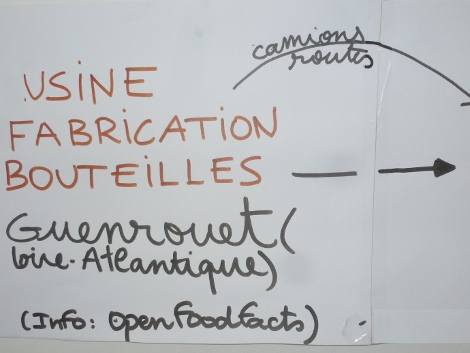 camions
routes
USiNE
FABRICATION
BOUTEiLLES
Guenrouet (
Loire-Atlantique)
(Info: OpenFoodFacts)